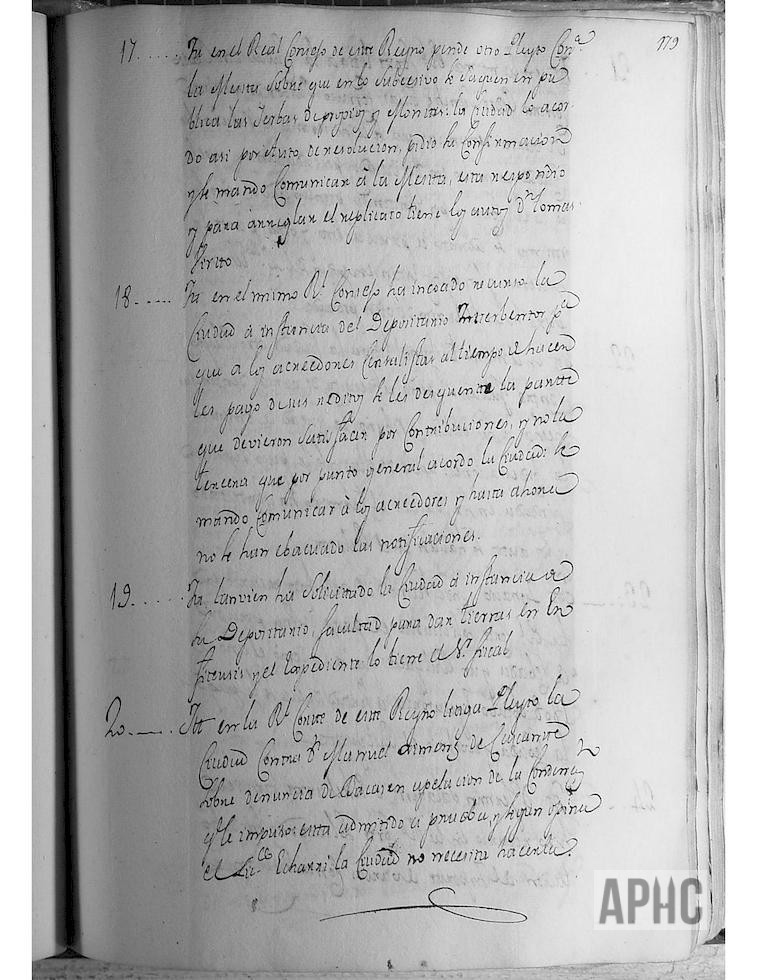 179
17...... Ytt en el Real Consejo de este Reyno pende otro Pleyto Con.ª
la Mesta Sobre que en lo Subcesivo se Saquen en pu
blica las Yerbas de propios y Montes: la Ciudad lo acor
do asi por Auto de resolucion, pidio su Confirmacion
y se mando Comunicar à la Mesta, esta respondio
y para arreglar el replicato tiene los autos Dn. Tomas
18..... Ytt en el mismo Rl. Consejo ha incoado recurso la
Ciudad à instancia del Depositario Interbentor pª
que a los acreedores Censalistas al tiempo de hacer
les pago de sus reditos se les desquente la partte
que devieron Satisfacer por Contribuciones, y no la
tercera que por punto general acordo la Ciudad: se
mando Comunicar à los acreedores y hasta ahora
no se han ebacuado las notificaciones.
19...... Ytt tanvien ha Solicitado la Ciudad à instancia de
su Depositario, facultad para dar tierras en En
fiteusis y el Expediente lo tiene el Sr. fiscal
20...... Ytt en la Rl. Corte de este Reyno litiga Pleyto la
Ciudad Contra Dn. Manuel Ximenz de Cascante
Sobre denuncia de Bacas en apelacion de la Conden.on
q.e se impuso: esta admitido à prueba, y segun opina
el Lic.do Echarri la Ciudad no necesita hacerla.
APHC